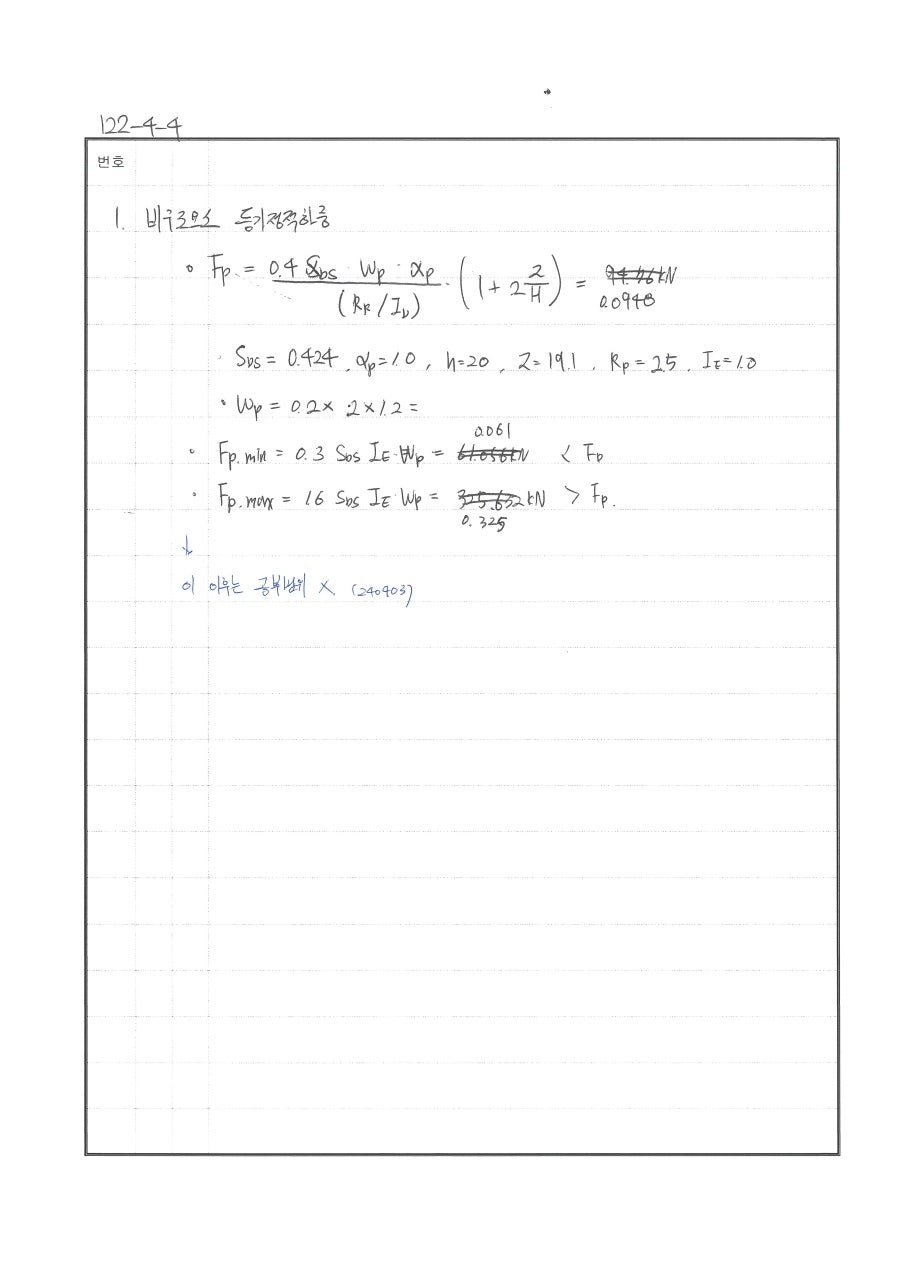 122-4-4
번호
1. 비구조요소 등가정적하중
∘ Fp = 0.4 SDS · Wp · αp / (Rp / Ip) · (1 + 2 z/H) = 94.76kN
0.0948
· SDS = 0.424, αp = 1.0, h = 20, Z = 19.1, Rp = 2.5, IE = 1.0
· Wp = 0.2 × 2 × 1.2 =
0.061
∘ Fp.min = 0.3 SDS IE · Wp = 61.056kN < Fp
∘ Fp.max = 1.6 SDS IE · Wp = 325.632kN > Fp.
0.325
↓
이 이후는 공부범위 × (240403)